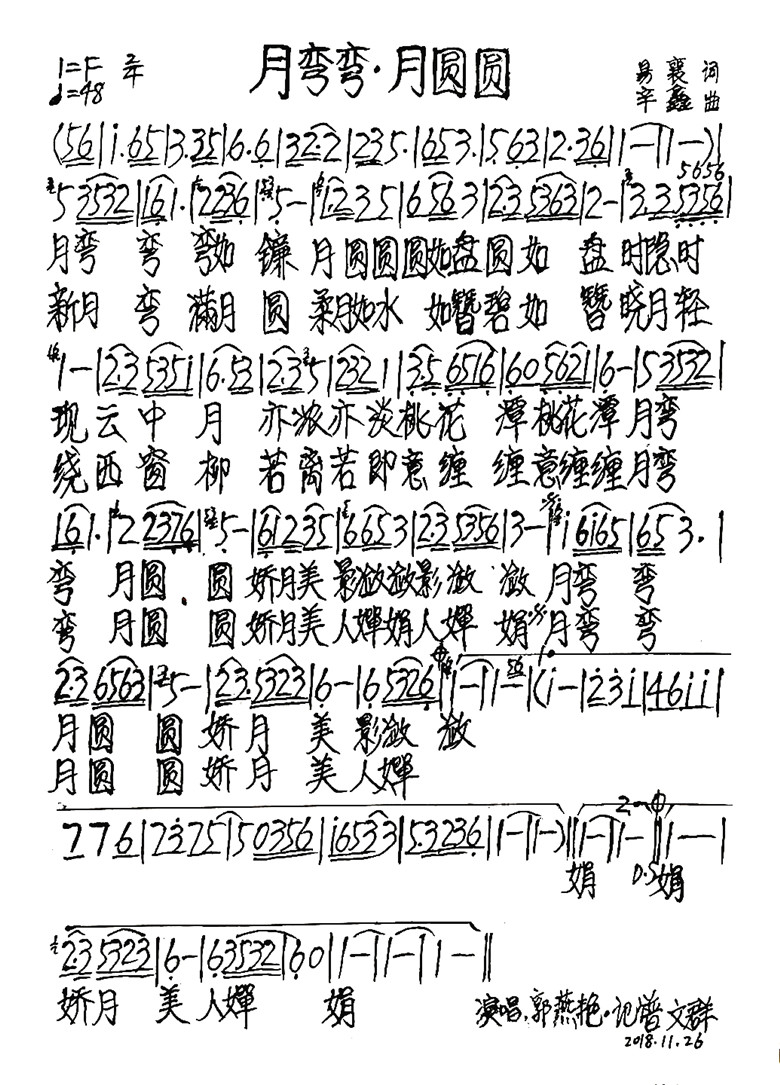 月弯弯·月圆圆
1=F 2/4
♩=48
易襄 词
辛鑫 曲
(56|i.65|3.35|6.6|32.2|235.|653.|563|2.36|1—|1—)|
5656
53532|161.|2236|5—|1.235|6563|2.35363|2—|3.35356|
月弯 弯 弯如 镰 月圆圆圆如盘圆如 盘时隐时
新月 弯 满月 圆 柔月如水 如簪碧如 簪晓月轻
1—|2.35351|6.53|2.35|2321|3.56516|605621|6—|53532|
现云中 月 亦浓亦淡桃花 潭桃花潭月弯
绕西窗 柳 若离若即意缠 缠意缠缠月弯
161.|22376|5—|61235|6653|2.35356|3—|i6i65|653.|
弯 月圆. 圆娇月美影潋潋影潋 潋月弯 弯
弯 月圆 圆娇月美人婵娟人婵 娟月弯 弯
2.36563|5—|23.5323|6—|65326|1—|1—|(i—|23i|46ii|
月圆 圆娇月 美影潋 潋
月圆 圆娇月 美人婵
776|2375|50356|i6533|5.3236|1—|1—)‖1—|1—‖1——|
2.
娟 D.S 娟
2.35323|6—|63532|60|1—|1—|1—‖
娇月 美人婵 娟
演唱.郭燕艳·记谱文群
2018.11.26